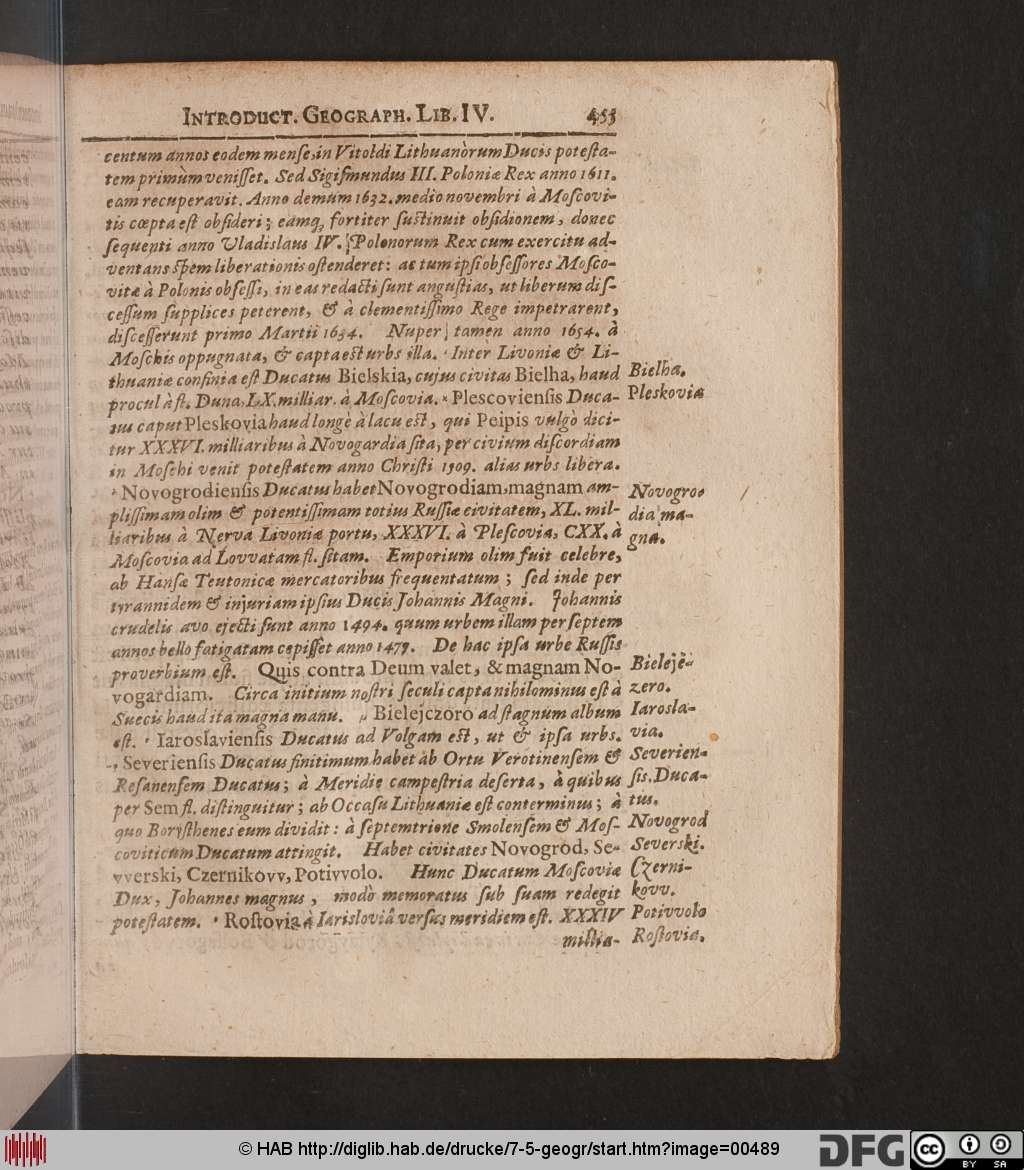 INTRODUCT. GEOGRAPH. LIB. IV. 453
centum annos eodem menſe, in Vitoldi Lithuanòrum Ducis poteſta-
tem primum veniſſet. Sed Sigiſmundus III. Poloniæ Rex anno 1611.
eam recuperavit. Anno demum 1632. medio novembri à Moſcovi-
tis cœpta eſt obſideri; eamq, fortiter ſuſtinuit obſidionem, donec
ſequenti anno Vladislaus IV. Polonorum Rex cum exercitu ad-
ventans ſpem liberationis oſtenderet: ac tum ipſi obſeſſores Moſco-
vitæ à Polonis obſeſſi, in eas redacti ſunt anguſtias, ut liberum diſ-
ceſſum ſupplices peterent, & à clementiſſimo Rege impetrarent,
diſceſſerunt primo Martii 1634. Nuper tamen anno 1654. à
Moſchis oppugnata, & capta eſt urbs illa. Inter Livoniæ & Li-
thuaniæ confinia eſt Ducatus Bielskia, cujus civitas Bielha, haud
procul à fl. Duna, LX. milliar. à Moſcovia. Plescovienſis Duca-
tus caput Pleskovia haud longè à lacu eſt, qui Peipis vulgò dici-
tur XXXVI. milliaribus à Novogardia ſita, per civium diſcordiam
in Moſchi venit poteſtatem anno Chriſti 1509. alias urbs libera.
Novogrodienſis Ducatus habet Novogrodiam magnam am-
pliſſimam olim & potentiſſimam totius Ruſſiæ civitatem, XL. mil-
liaribus à Nerva Livoniæ portu, XXXVI. à Pleſcovia, CXX. à
Moſcovia ad Lovvatam fl. ſitam. Emporium olim fuit celebre,
ab Hanſæ Teutonicæ mercatoribus frequentatum; ſed inde per
tyrannidem & injuriam ipſius Ducis Johannis Magni. Johannis
crudelis avo ejecti ſunt anno 1494. quum urbem illam per ſeptem
annos bello fatigatam cepiſſet anno 1477. De hac ipſa urbe Ruſſis
proverbium eſt. Quis contra Deum valet, & magnam No-
vogardiam. Circa initium noſtri ſeculi capta nihilominus eſt à
Suecis haud ita magna manu. Bielejczoro ad ſtagnum album
eſt. Iaroslavienſis Ducatus ad Volgam eſt, ut & ipſa urbs.
Severienſis Ducatus finitimum habet ab Ortu Verotinenſem &
Reſanenſem Ducatus; à Meridie campeſtria deſerta, à quibus
per Sem fl. diſtinguitur; ab Occaſu Lithuaniæ eſt conterminus; à
quo Boryſthenes eum dividit: à ſeptemtrione Smolenſem & Moſ-
coviticum Ducatum attingit. Habet civitates Novogrod, Se-
vverski, Czernikovv, Potivvolo. Hunc Ducatum Moſcoviæ
Dux, Johannes magnus, modò memoratus ſub ſuam redegit
poteſtatem. Roſtovia à Iarislovia verſus meridiem eſt. XXXIV
millia-
Bielha.
Pleskovia
Novogro-
dia ma-
gna.
Bielejè-
zero.
Iarosla-
via.
Severien-
ſis. Duca-
tus.
Novogrod
Severski.
Czerni-
kovv.
Potivvolo
Roſtovia.
© HAB http://diglib.hab.de/drucke/7-5-geogr/start.htm?image=00489
DFG
cc BY SA